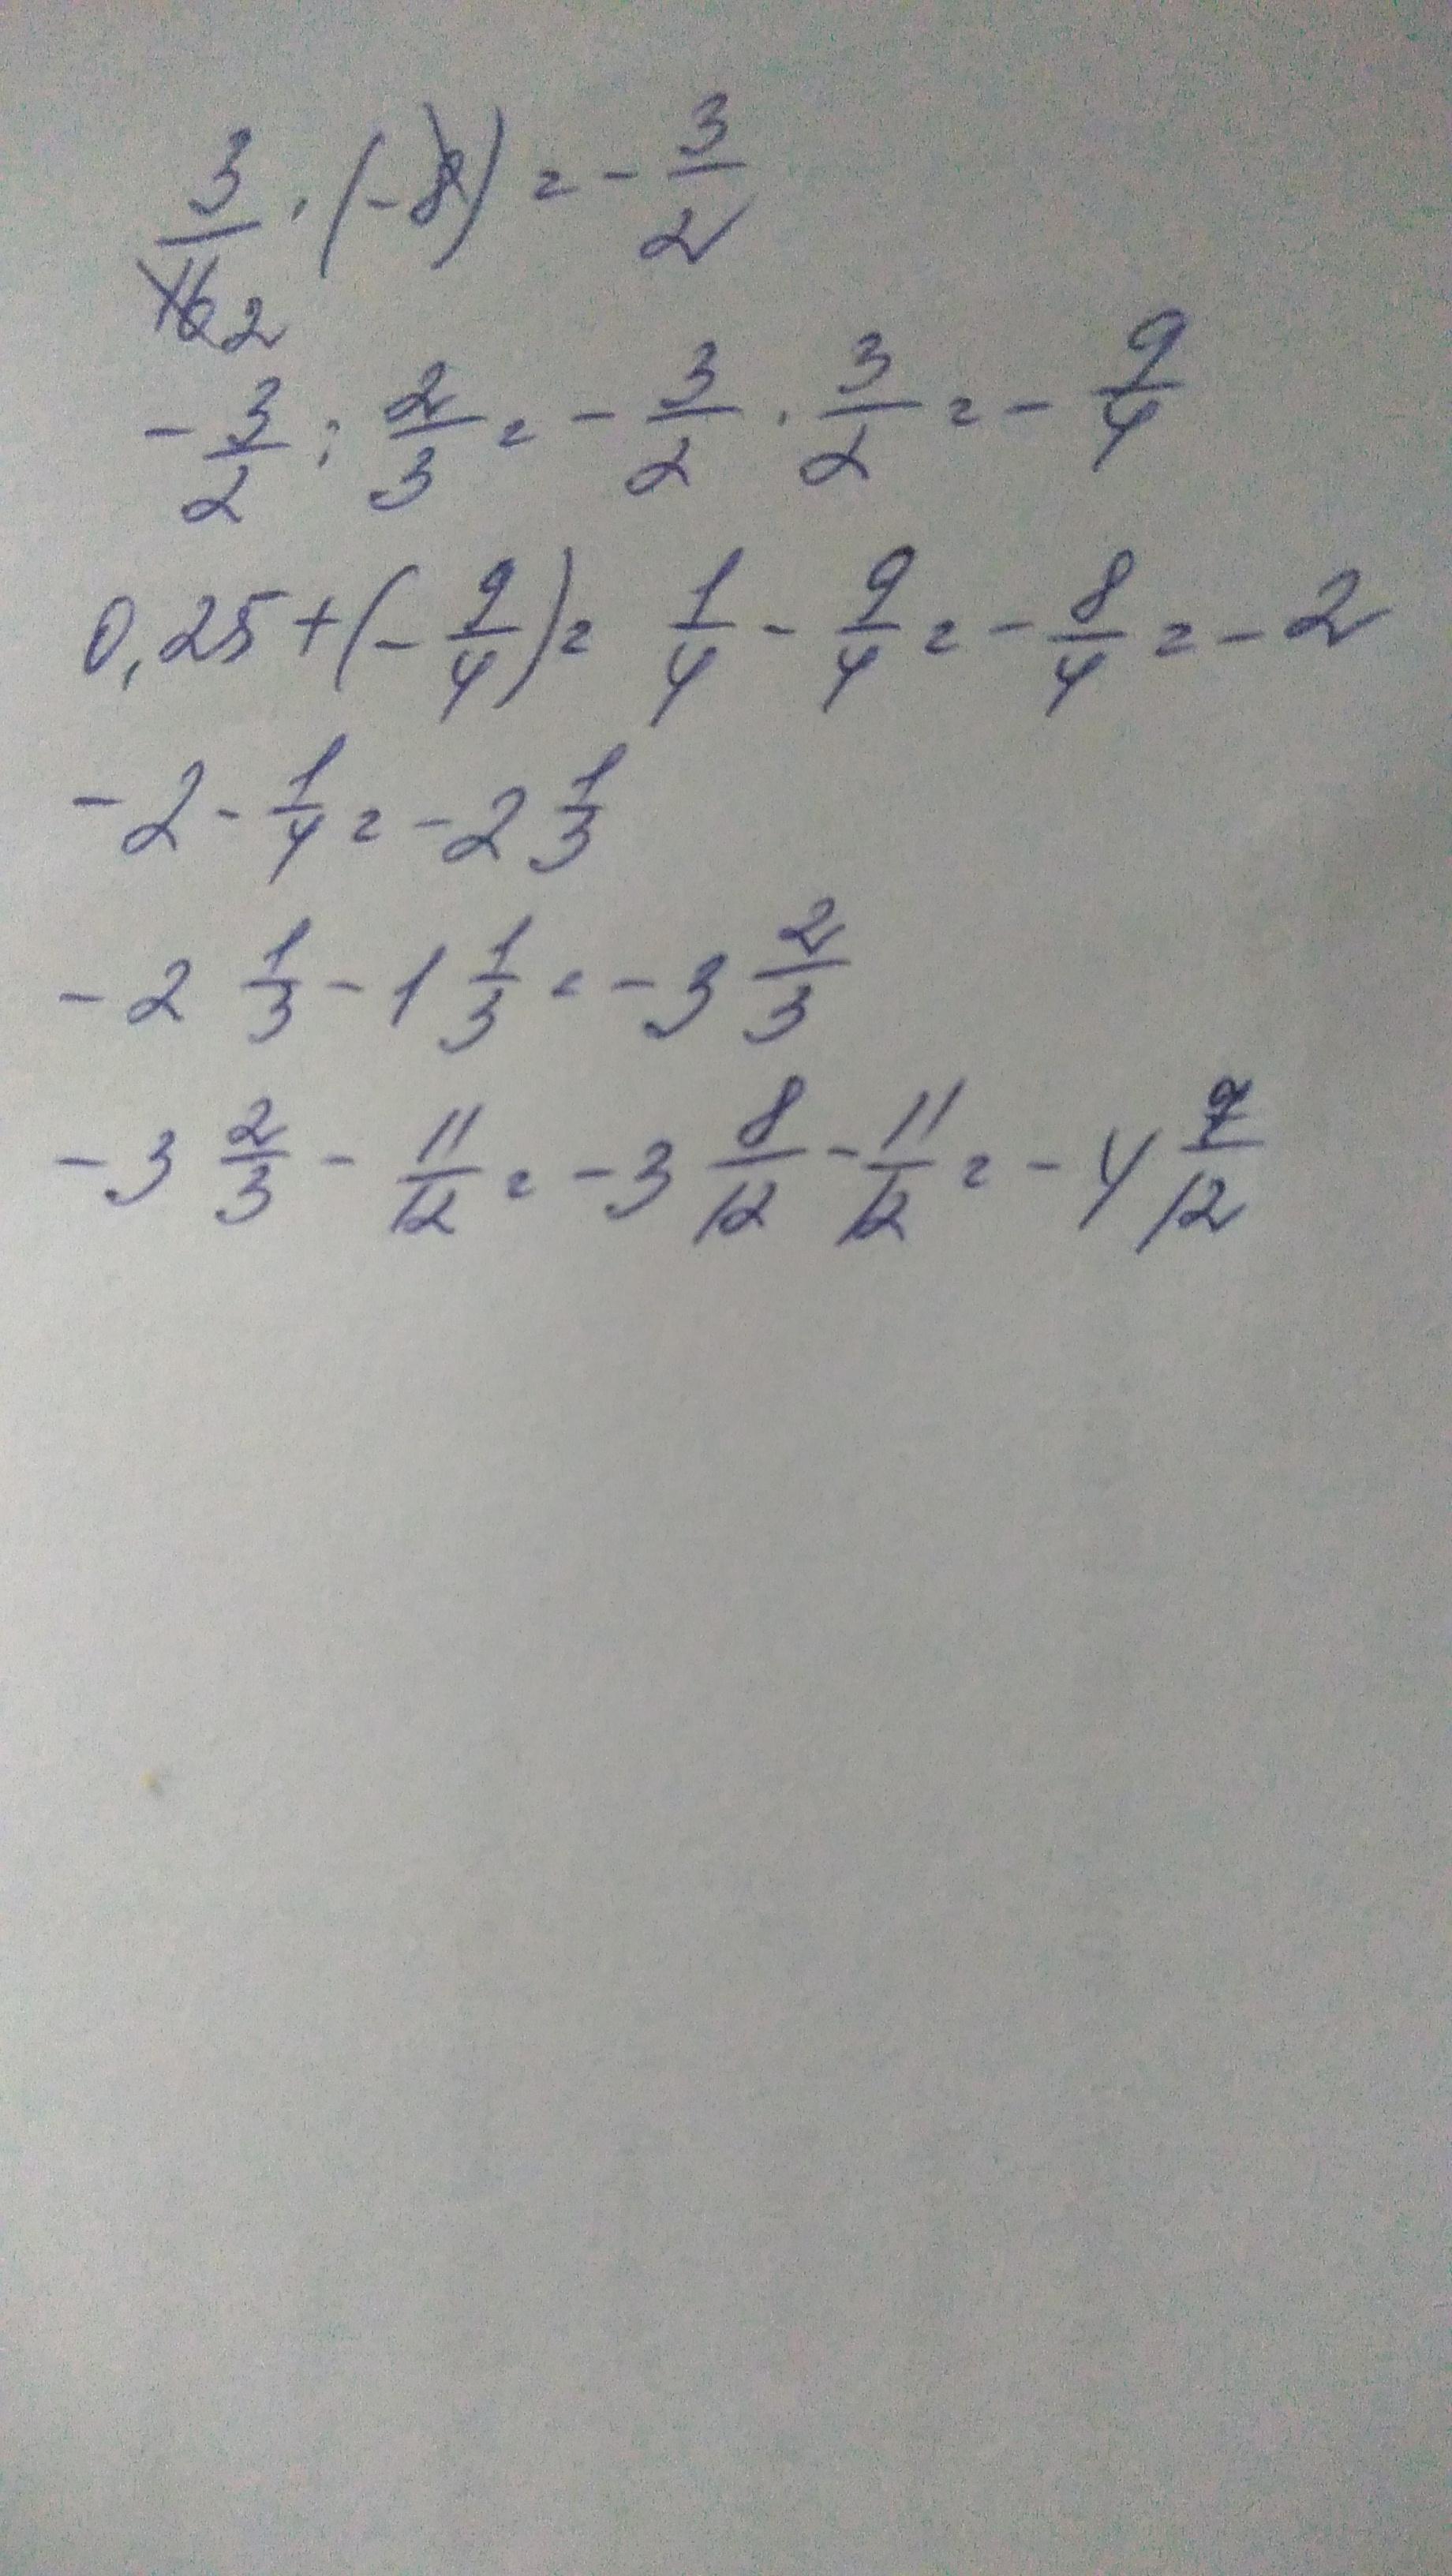 3/16 2 · (-8) = - 3/2
- 3/2 : 2/3 = - 3/2 · 3/2 = - 9/4
0,25 + (- 9/4) = 1/4 - 9/4 = - 8/4 = - 2
- 2 - 1/4 = - 2 1/3
- 2 1/3 - 1 1/3 = - 3 2/3
- 3 2/3 - 11/12 = - 3 8/12 - 11/12 = - 4 7/12